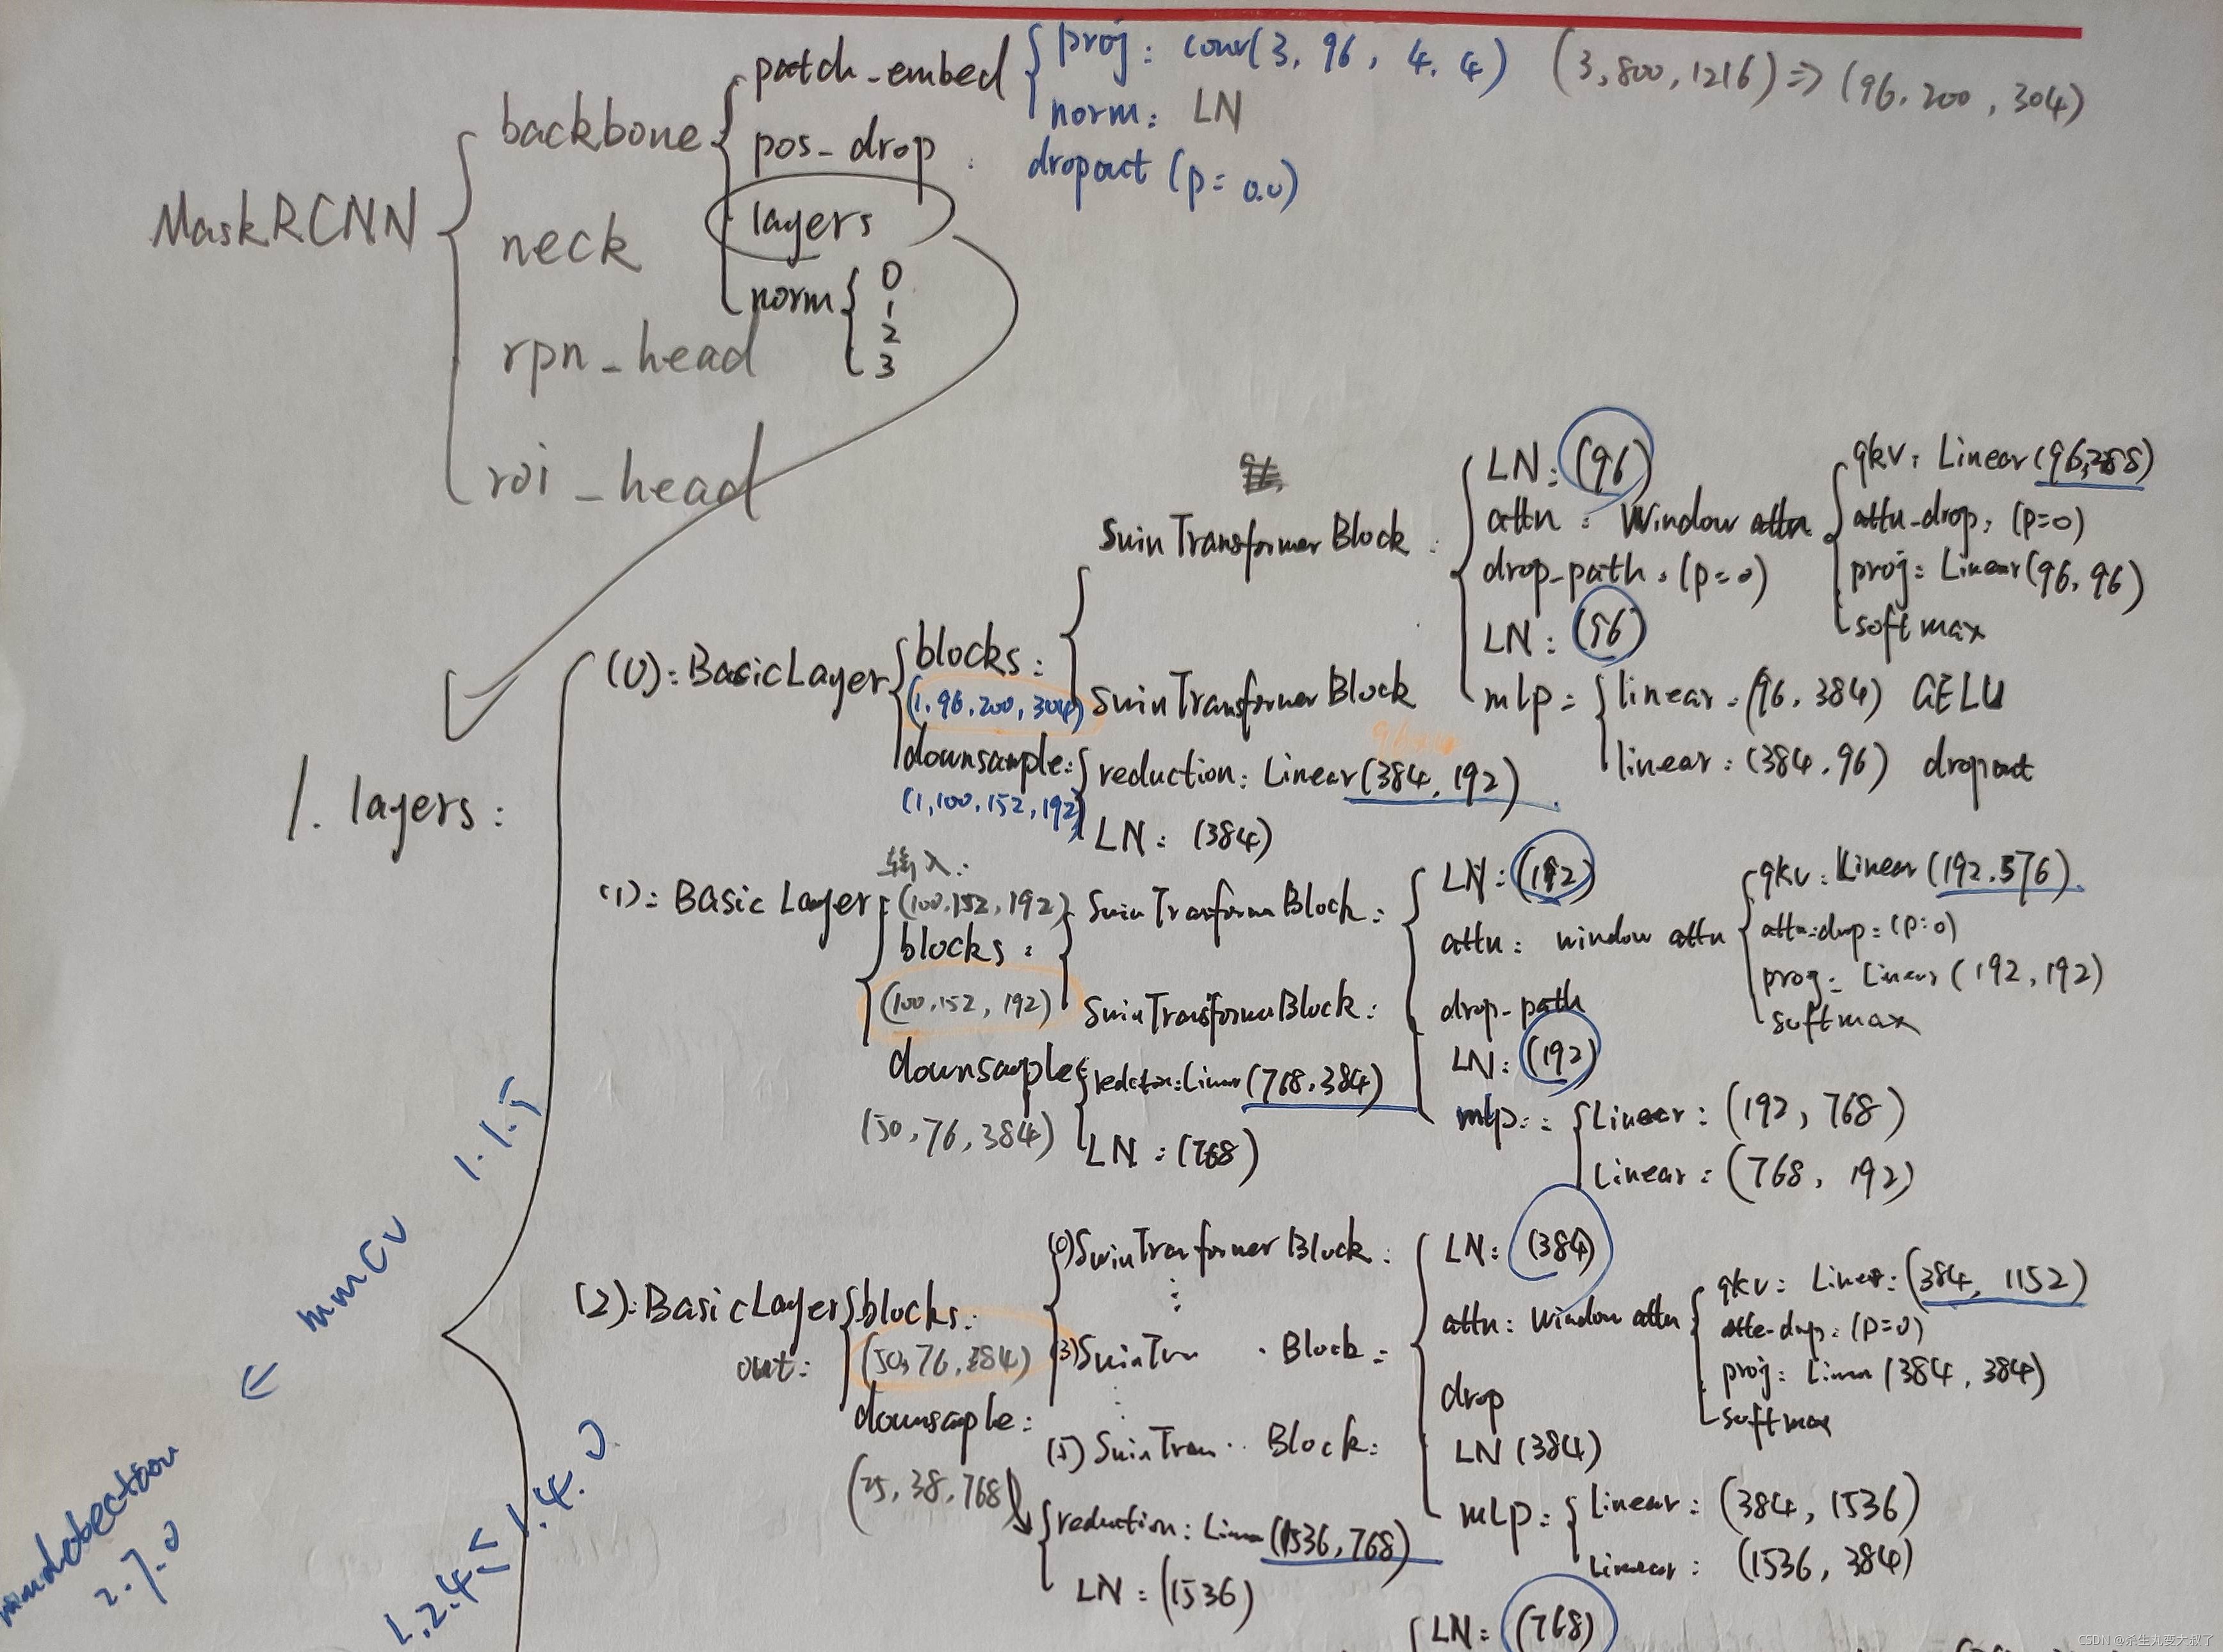 MaskRCNN
backbone
neck
rpn_head
roi_head
patch_embed
proj: conv(3, 96, 4, 4) (3,800,1216) => (96,200,304)
norm: LN
pos_drop : dropout (p=0.0)
layers
norm
0
1
2
3
1. layers:
(0): BasicLayer
blocks:
(1,96,200,304)
SwinTransformerBlock:
LN: (96)
attn: Window attn
qkv: Linear(96,288)
attn-drop: (p=0)
proj: Linear(96,96)
softmax
drop-path: (p=0)
LN: (96)
mlp:
linear: (96,384) GELU
linear: (384,96) dropout
SwinTransformerBlock
downsample:
(1,100,152,192)
reduction: Linear(384,192)
LN: (384)
(1): BasicLayer
输入:
(100,152,192)
blocks:
(100,152,192)
SwinTransformBlock:
SwinTransformerBlock:
LN: (192)
attn: window attn
qkv: Linear (192,576)
attn-drop: (p=0)
proj: Linear (192,192)
softmax
drop-path
LN: (192)
mlp:
Linear: (192,768)
Linear: (768,192)
downsample:
(50,76,384)
reduction: Linear (768,384)
LN: (768)
(2): BasicLayer
blocks:
out: (50,76,384)
(0) SwinTransformerBlock:
(3) SwinTran . Block:
(5) SwinTran .. Block:
LN: (384)
attn: Window attn
qkv: Linear: (384, 1152)
attn-drop: (p=0)
proj: Linear (384,384)
softmax
drop
LN (384)
mlp:
Linear: (384,1536)
Linear: (1536,384)
downsaple:
(25,38,768)
reduction: Linear (1536,768)
LN: (1536)
LN: (768)
mmdetection
2.7.0
mmcv
1.1.5
1.2.4
1.4.0
CSDN @杀生丸变大叔了